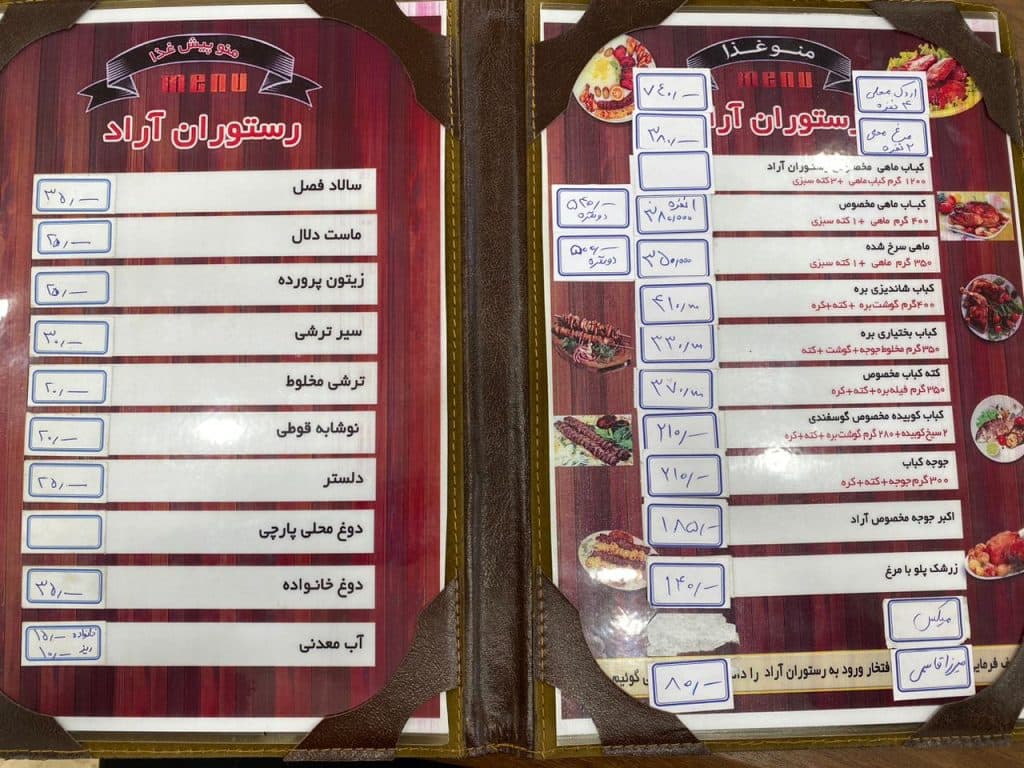 منو پیش غذا
MENU
رستوران آراد
سالاد فصل ۳۵٫—
ماست دلال ۲۵٫—
زیتون پرورده ۲۵٫—
سیر ترشی ۳۰٫—
ترشی مخلوط ۲۰٫—
نوشابه قوطی ۲۰٫—
دلستر ۲۵٫—
دوغ محلی پارچی
دوغ خانواده ۳۵٫—
آب معدنی
خانواده ۱۵٫—
ریز ۱۰٫—
منو غذا
MENU
رستوران آراد
اردک محلی
۴ نفره
۷۴۰٫—
مرغ محلی
۲ نفره
۳۸۰٫—
کباب ماهی مخصوص رستوران آراد
۱۲۰۰ گرم کباب ماهی +۳ کته سبزی
کباب ماهی مخصوص
۴۰۰ گرم ماهی +۱ کته سبزی
۱نفره
۳۸۰٫۰۰۰
۵۴۰٫—
دونفره
ماهی سرخ شده
۳۵۰ گرم ماهی +۱ کته سبزی
۳۵۰٫۰۰۰
۵۰۰٫—
دونفره
کباب شاندیزی بره
۴۰۰گرم گوشت بره +کته+کره
۴۱۰٫۰۰۰
کباب بختیاری بره
۳۵۰گرم مخلوط جوجه+گوشت +کته
۳۳۰٫۰۰۰
کته کباب مخصوص
۳۵۰گرم فیله بره+کته+کره
۳۷۰٫۰۰۰
کباب کوبیده مخصوص گوسفندی
۲ سیخ کوبیده+۲۸۰ گرم گوشت بره +کته+کره
۲۱۰٫—
جوجه کباب
۳۰۰گرم جوجه+کته+کره
۲۱۰٫—
اکبر جوجه مخصوص آراد
۱۸۵٫—
زرشک پلو با مرغ
۱۴۰٫—
میکس
میرزا قاسمی
۸۰٫—
افتخار ورود به رستوران آراد را گوئیم